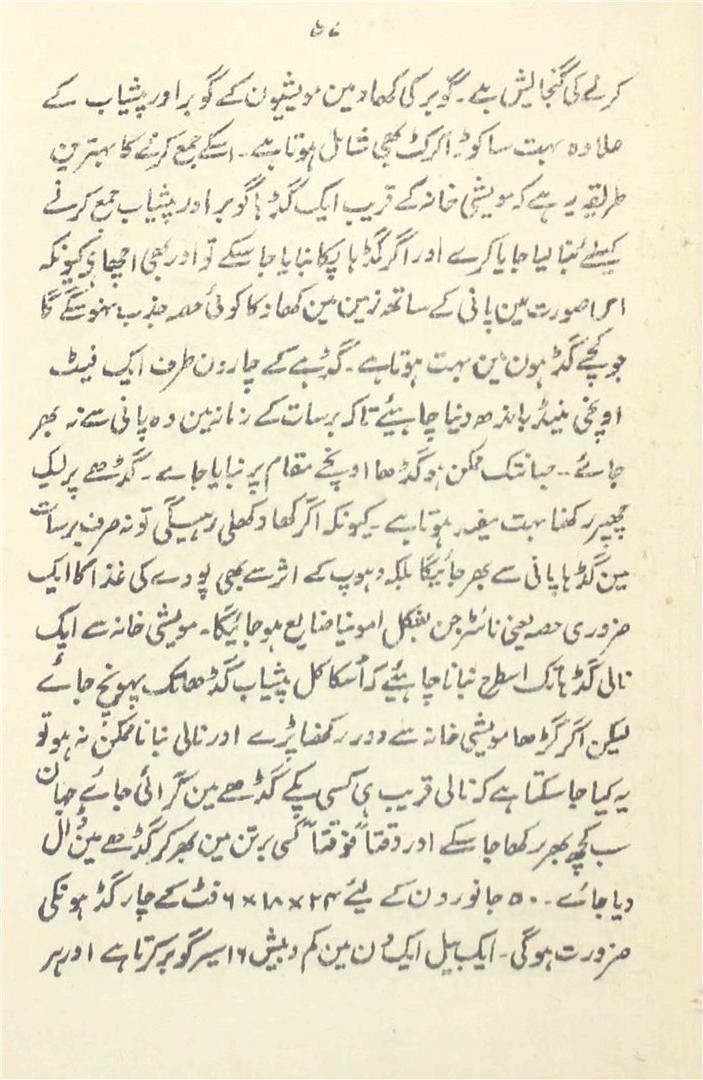 ۵۷
کرنے کی گنجایش ہے۔ گوبر کی کھاد مین مویشیون کے گوبر اور پیشاب کے
علاوہ بہت سا کوڑا کرکٹ بھی شامل ہوتا ہے۔ اسکے جمع کرنے کا بہترین
طریقہ یہ ہے کہ مویشی خانہ کے قریب ایک گڈہا گوبر اور پیشاب جمع کرنے
کیلئے بنا لیا جایا کرے اور اگر گڈہا پکا بنایا جا سکے تو اور بھی اچھا ہی کیونکہ
اس صورت مین پانی کے ساتھ زمین مین کھاد کا کوئی حصہ جذب نہو سکے گا
جو کچے گڈہون مین بہت ہوتا ہے۔ گڈہے کے چارون طرف ایک فیٹ
اونچی مینڈ باندھ دینا چاہیئے تاکہ برسات کے زمانہ مین وہ پانی سے نہ بھر
جائے۔ جہانتک ممکن ہو گڈھا اونچے مقام پر بنایا جاے۔ گڈھے پر ایک
چھپر رکھنا بہت مفید ہوتا ہے۔ کیونکہ اگر کھاد کھلی رہیگی تو نہ صرف برسات
مین گڈہا پانی سے بھر جائیگا بلکہ دہوپ کے اثر سے بھی پودے کی غذا کا ایک
ضروری حصہ یعنی نائٹروجن بشکل امونیا ضایع ہو جائیگا۔ مویشی خانہ سے ایک
نالی گڈہا تک اسطرح بنانا چاہئیے کہ اُسکا کل پیشاب گڈھا تک پہونچ جاے
لیکن اگر گڑھا مویشی خانہ سے دور رکھنا پڑے اور نالی بنانا ممکن نہ ہو تو
یہ کیا جا سکتا ہے کہ نالی قریب ہی کسی پکے گڈھے مین گرائی جائے جہان
سب کچھ بھر رکھا جا سکے اور وقتاً فوقتاً کسی برتن مین بھر کر گڈھے مین ڈال
دیا جائے۔ ۵۰ جانورون کے لیئے ۲۴ × ۱۸ × ۶ فٹ کے چار گڈہونکی
ضرورت ہوگی۔ ایک بیل ایک دن مین کم و بیش ۱۶ سیر گوبر کرتا ہے اور ہر